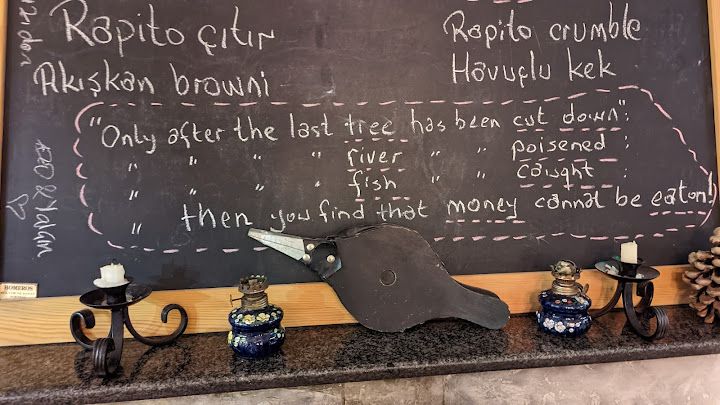 Rapito çıtır
Rapito crumble
Akışkan browni
Havuçlu kek
"Only after the last tree has been cut down":
" " " " river " " poisened :
" " " " fish " " caught :
" then you find that money cannot be eaton!
HOMEROS